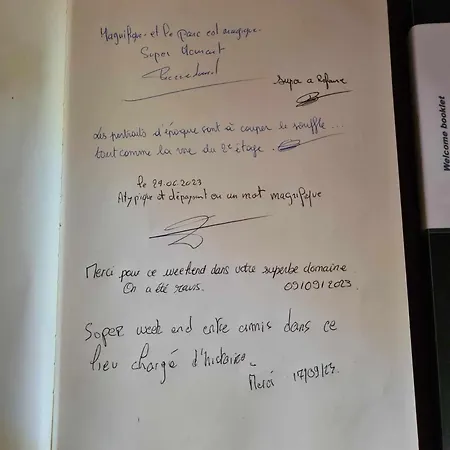 Magnifique et le parc est magique.
Super Moment
Super a Refaire
Les portraits d'époque sont à couper le souffle...
tout comme la vue du 2e étage.
le 29.06.2023
Atypique et dépaysant ou un mot magnifique
Merci pour ce weekend dans votre superbe domaine
On a été ravis. 09/09/2023.
Super week end entre amis dans ce
lieu chargé d'histoire.
Merci 17/09/23.
Welcome booklet